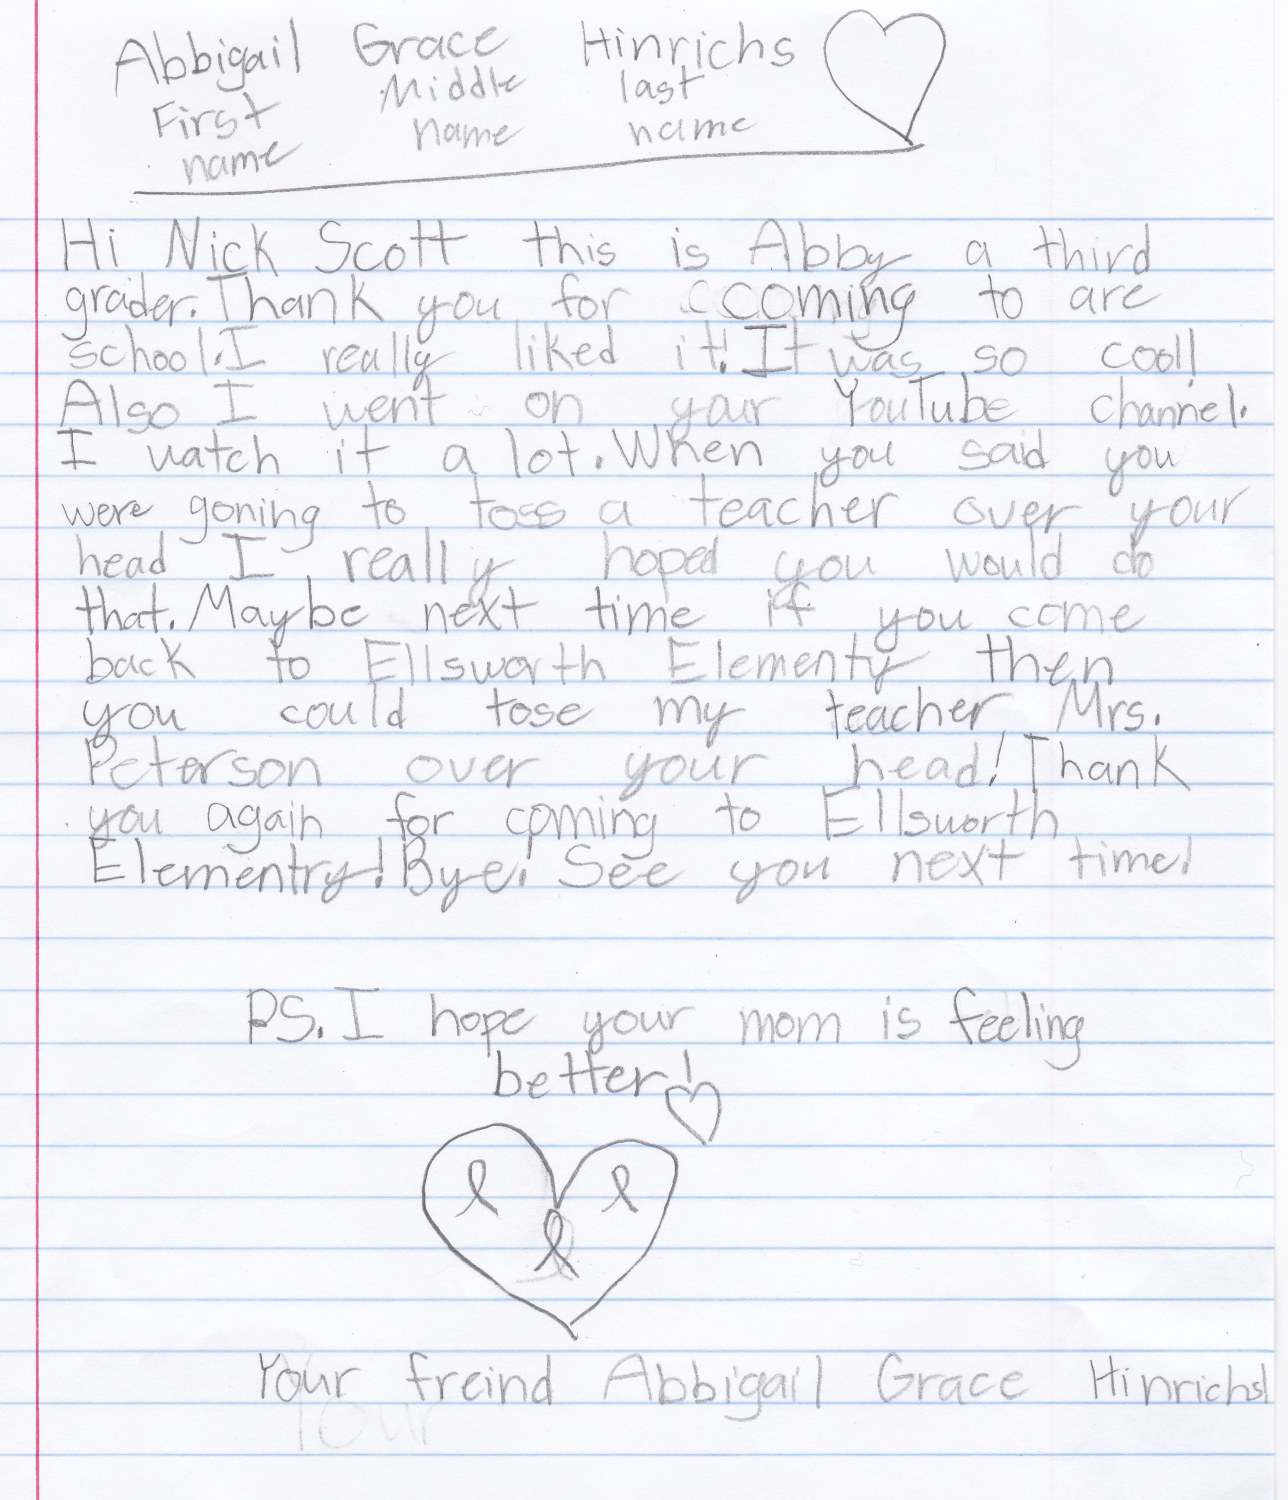 Abbigail Grace Hinrichs
First Middle last
name name name
Hi Nick Scott this is Abby a third
grader. Thank you for ccoming to are
school. I really liked it! It was so cool!
Also I went on your YouTube channel.
I watch it a lot. When you said you
were goning to toss a teacher over your
head I really hoped you would do
that. Maybe next time if you come
back to Ellsworth Elementy then
you could tose my teacher Mrs.
Peterson over your head! Thank
you again for coming to Ellsworth
Elementry! Bye! See you next time!
PS. I hope your mom is feeling
better!
Your freind Abbigail Grace Hinrichs!
Your